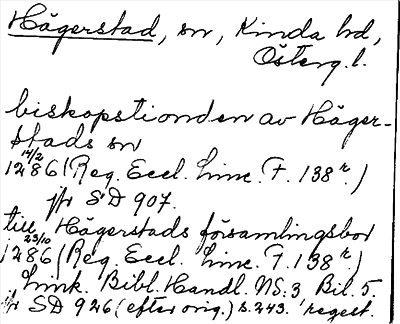 Hägerstad, sn, Kinda hd,
Österg. l.
biskopstionden av Häger-
stads sn
14/2
1286 (Reg. Eccl. Linc. F. 138 r.)
jfr SD 907.
till Hägerstads församlingsbor
23/10
1286 (Reg. Eccl. Linc. F. 138 r.)
Link. Bibl. Handl. NS. 3 Bil. 5
jfr SD 926 (efter orig.) s. 243. regest.